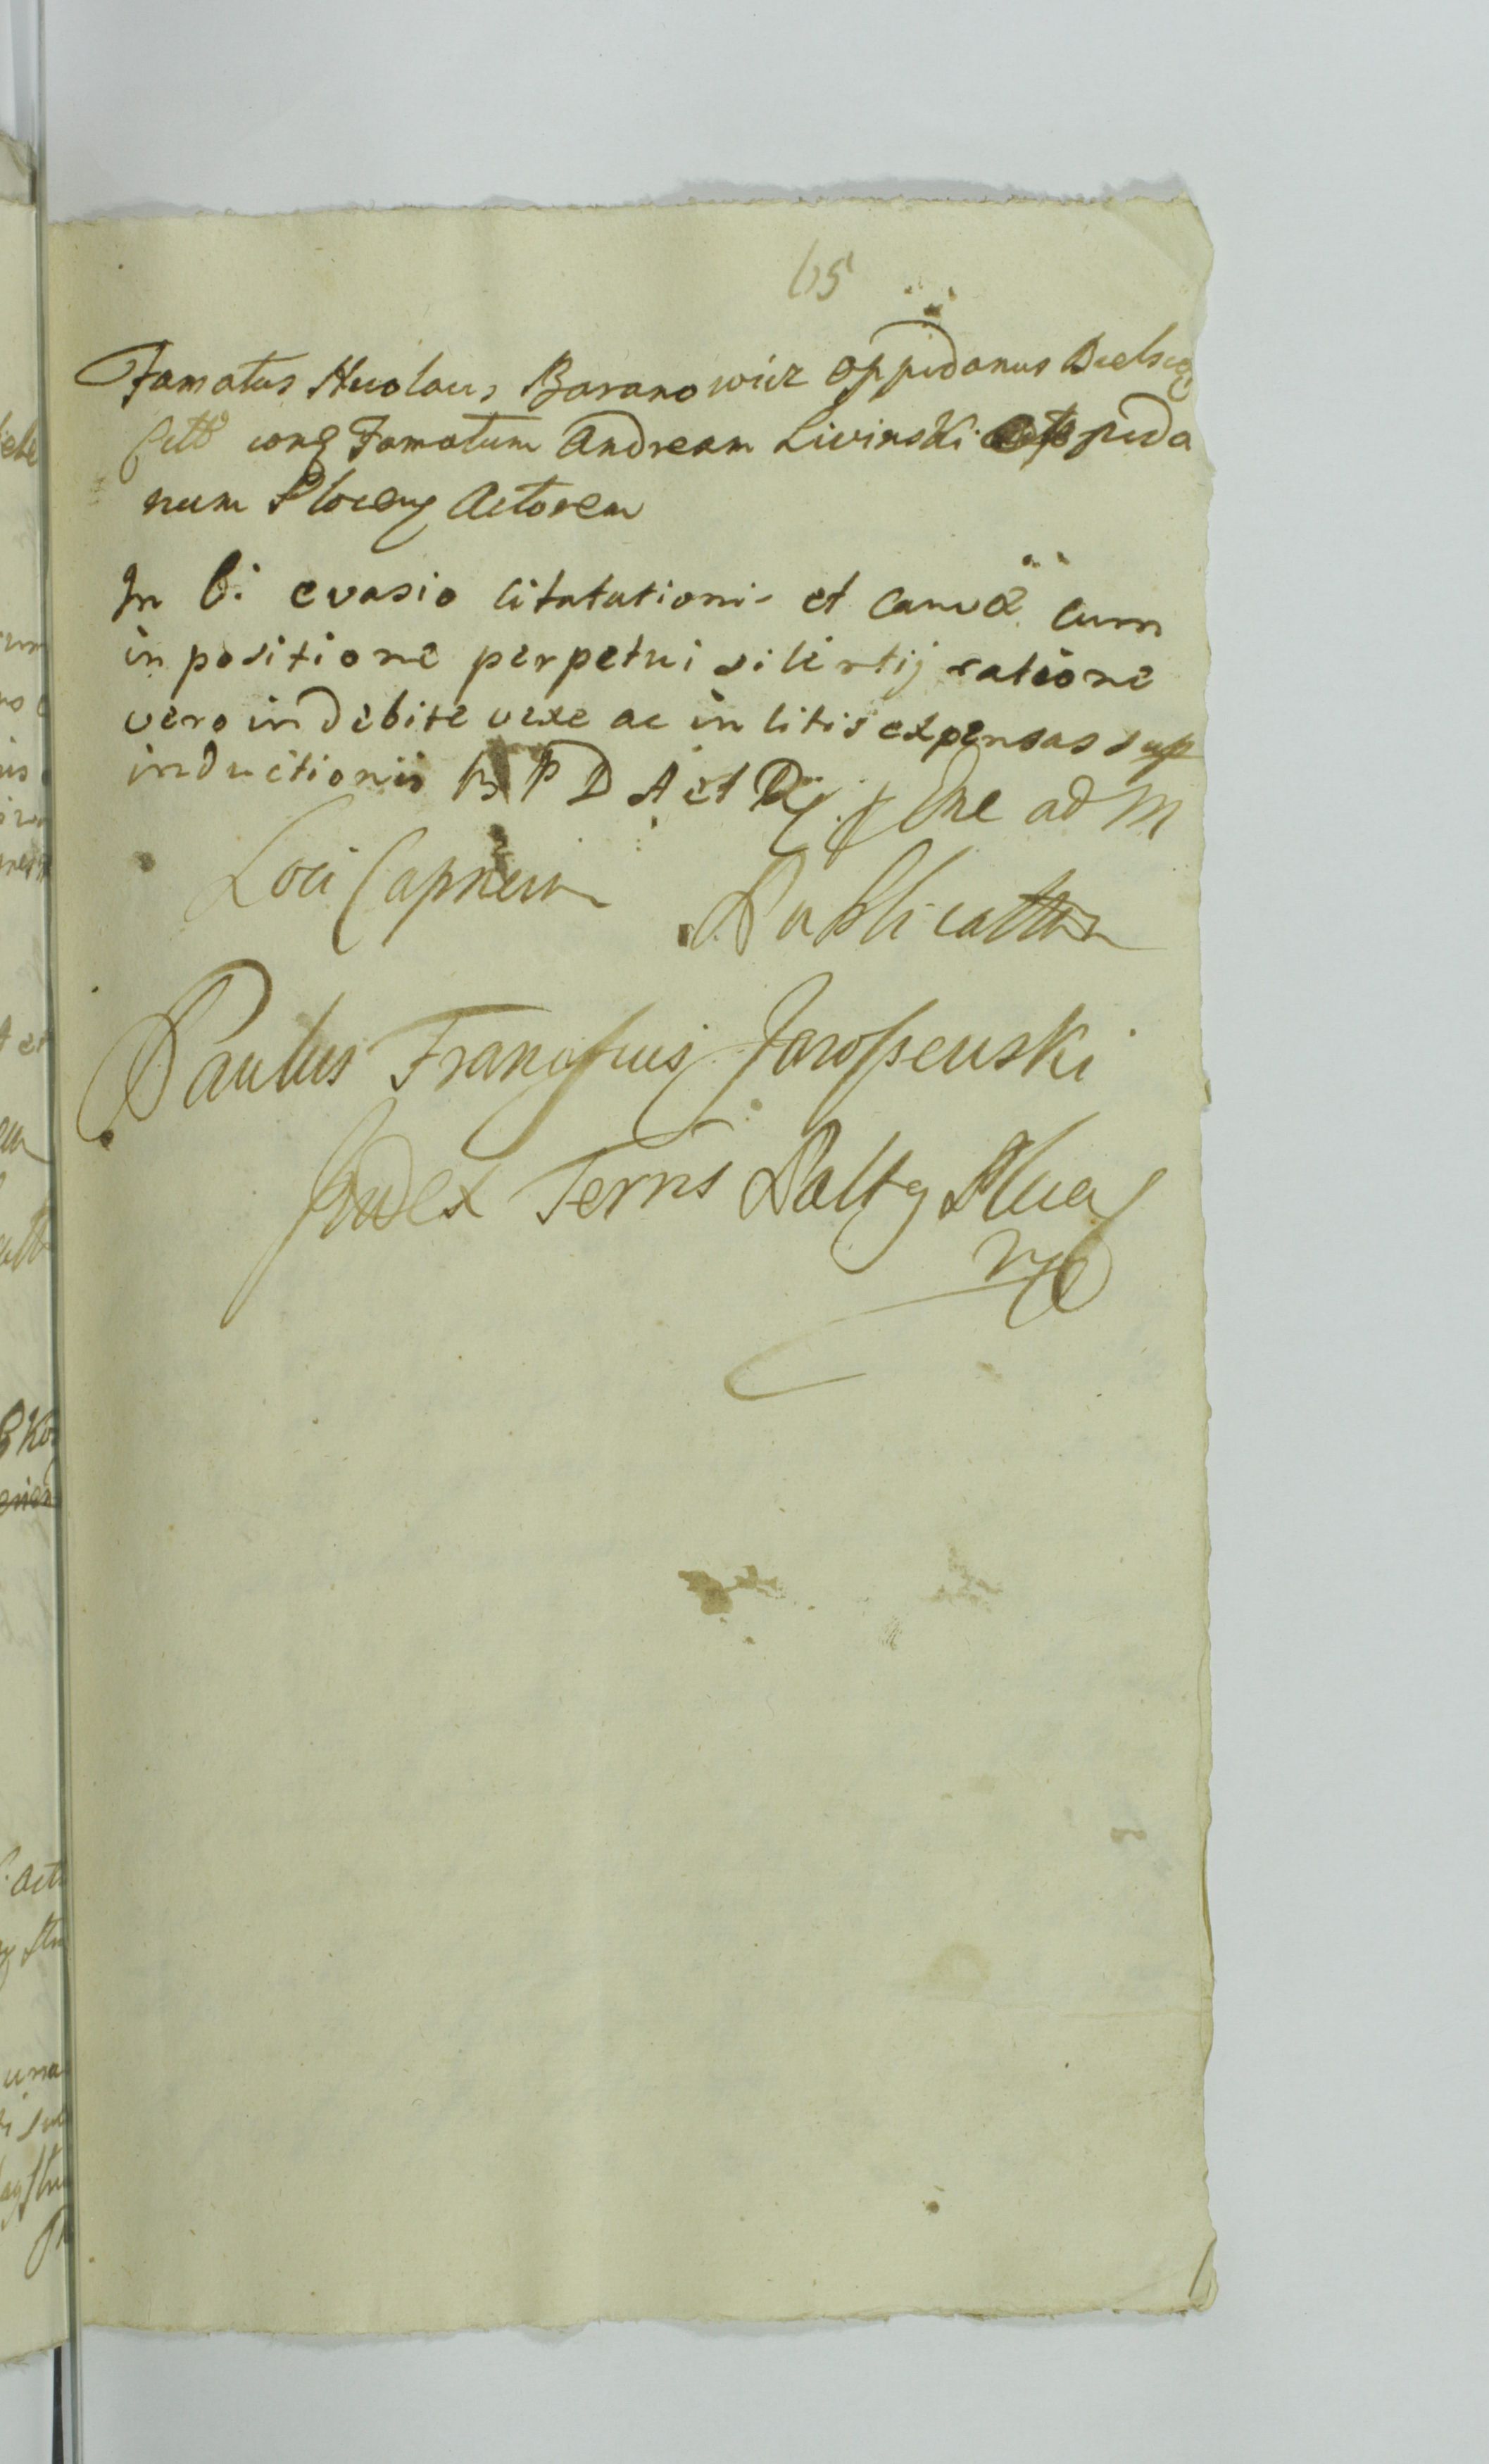 65
Famatus Nicolaus Baranowicz oppidanus Bielscen
Citt cong Famatum Andream Livinski Oppida
num Plocen Actorem
In C: evasio citatationis et causæ cum
inpositione perpetui silentij ratione
vero indebite vexæ ac in litis expensas sup
inductionis P D A et D ad M
Loci Capneum Publicattum
Paulus Franciscus Jarossewski
Judex Terris Palts Plocen
mp